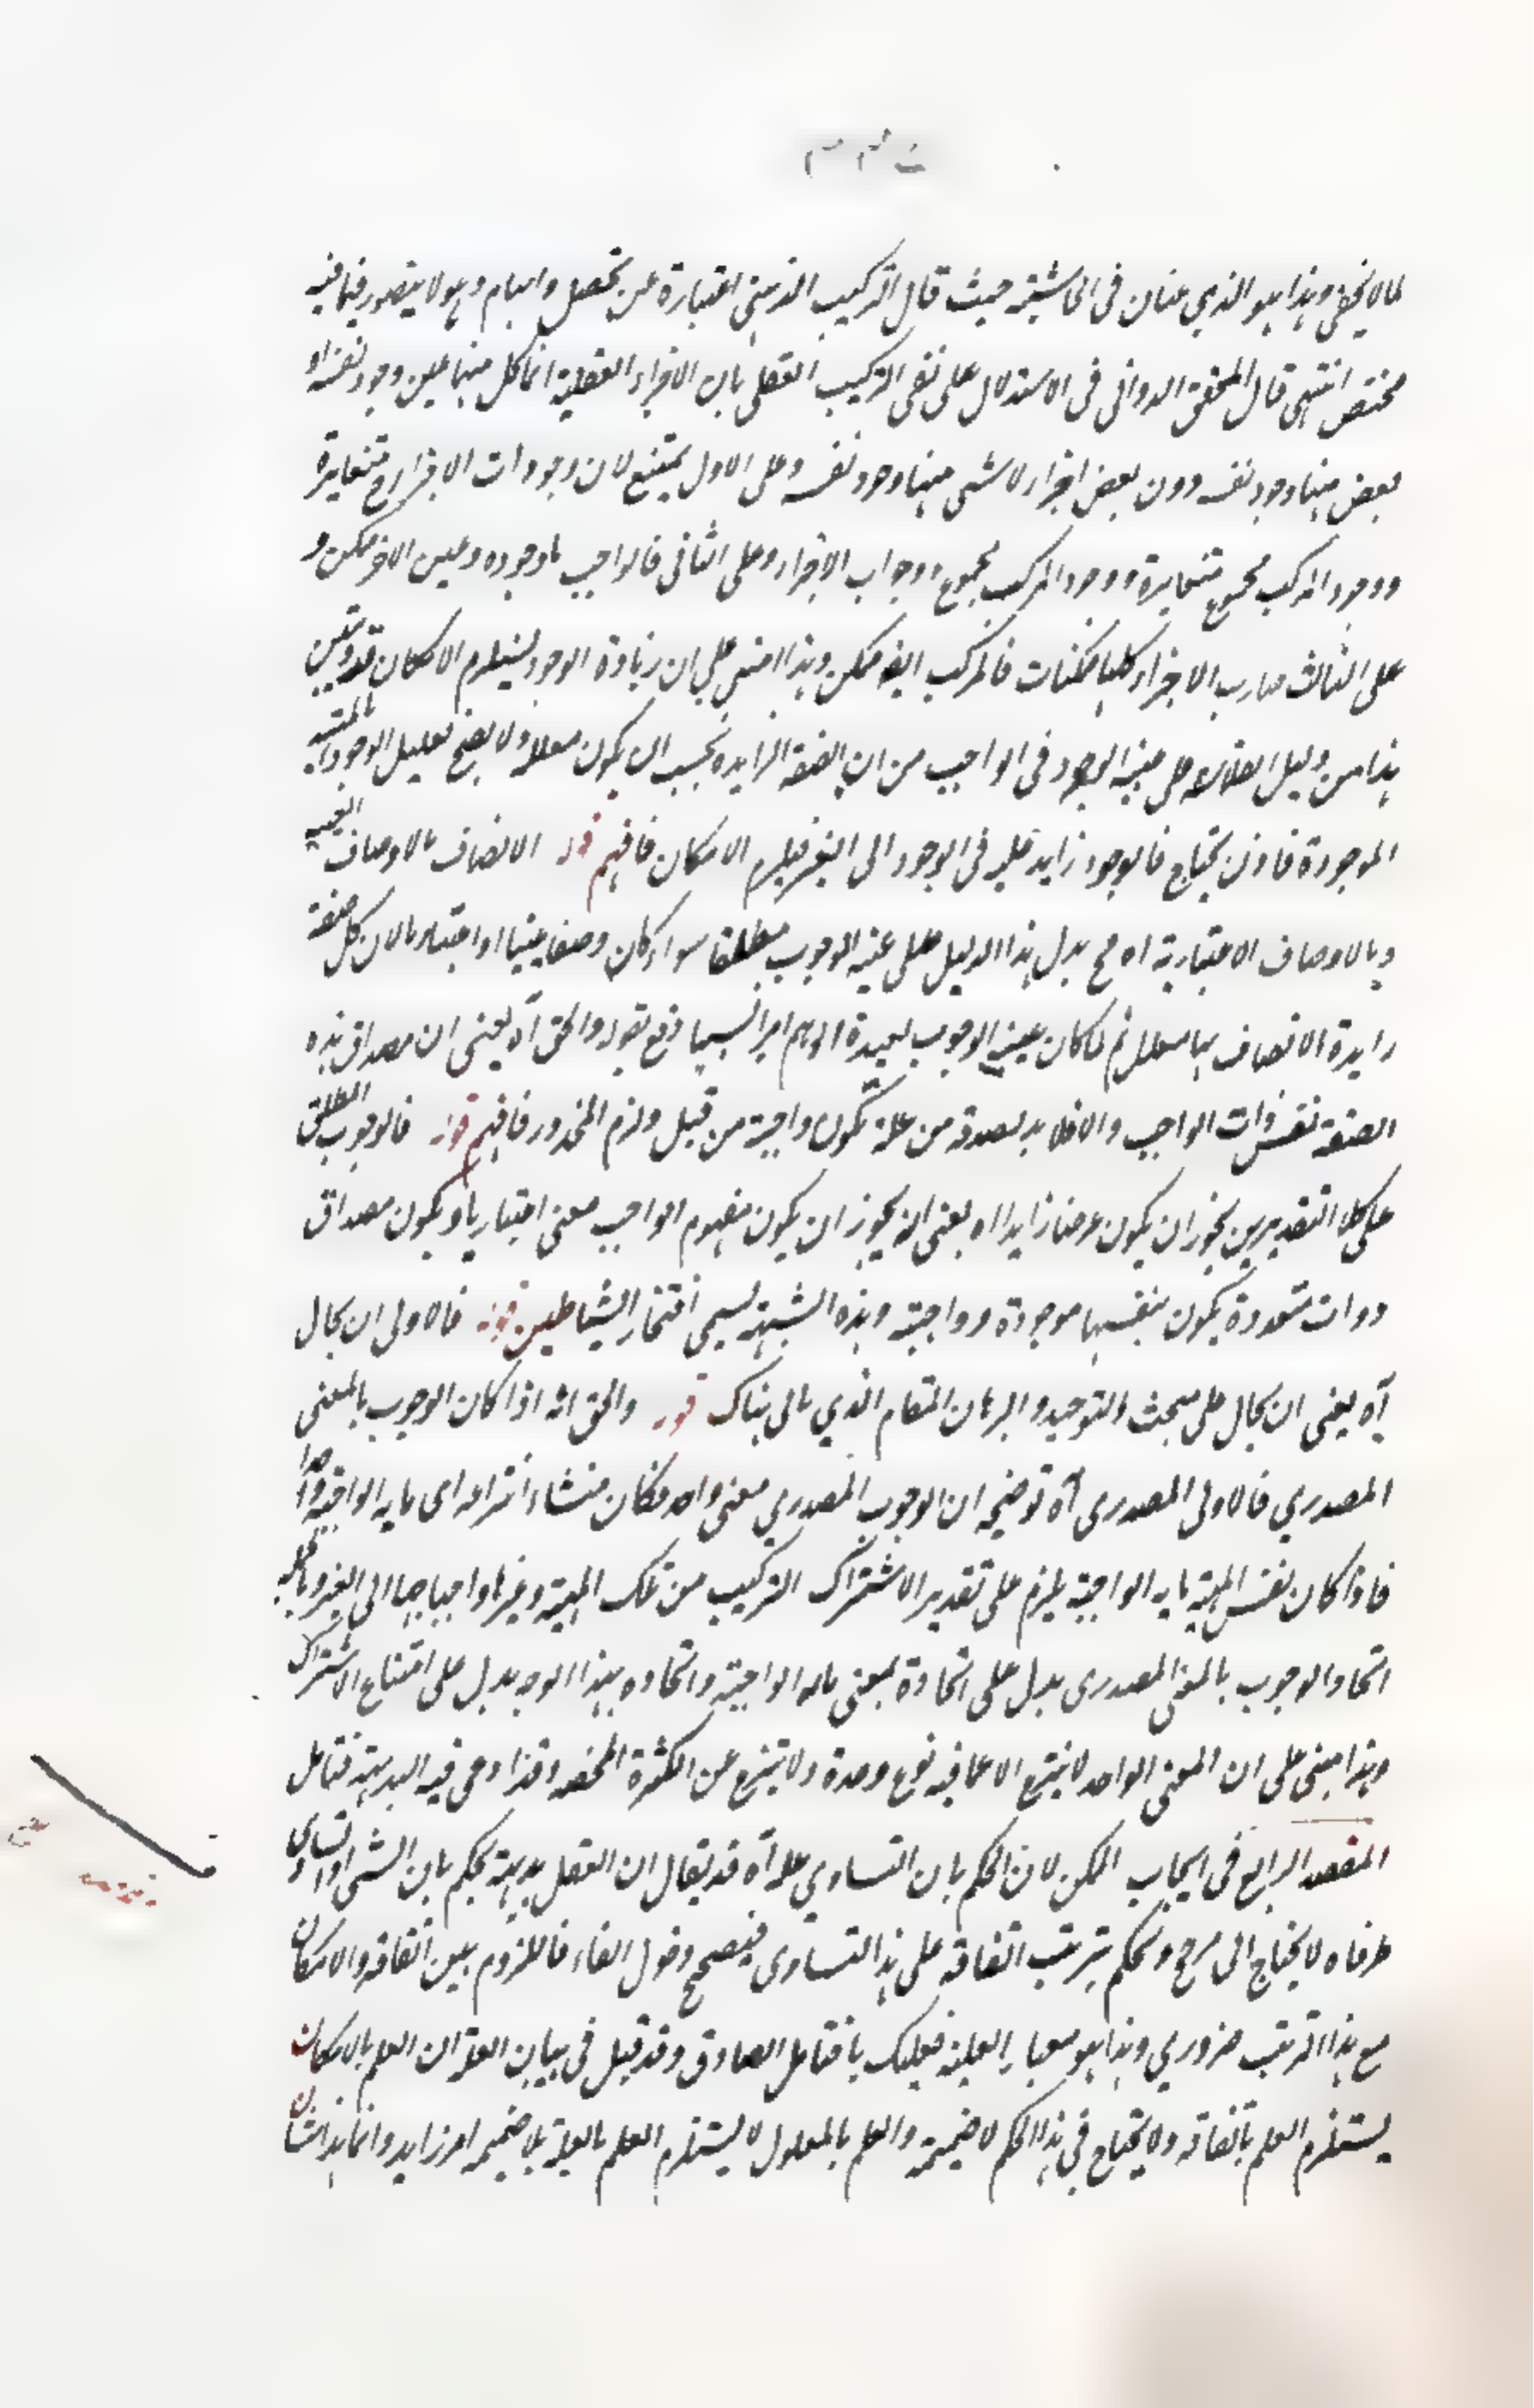 كما لا يخفى وهذا هو الذي عنان في الحاشية حيث قال التركيب الذهني اعتبارة عن تحصل وابهام وهو لا يتصور فيما فيه
مختص انتهى قال المحقق الدواني في الاستدلال على نفى التركيب العقلي بان الاجزاء العقلية اما كل منها عين وجود نفسه او
بعض منها وجود نفسه دون بعض اجزاء لا شى منها وجود نفسه وعلى الاول يمتنع لان وجودات الاجزاء متغايرة
ووجود المركب مجموع متغايرة ووجود المركب مجموع وجودات الاجزاء وعلى الثاني فالواجب ما وجوده وعين الاخر ممكن و
على الثالث صارت الاجزاء كلها ممكنات فالمركب ايضا ممكن وهذا مبنى على ان زيادة الوجود يستلزم الامكان قد وتبين
هذا من دليل العلامة على عينية الوجود في الواجب من ان الصفة الزايدة يجب ان يكون معللا ولا يصح تعليل الوجود بالمهية
الموجودة فاذن يحتاج فالوجود زايد عليه في الوجود الى الغير فيلزم الامكان فافهم قوله الاتصاف بالاوصاف العينية
وبالاوصاف الاعتبارية اه مح يدل هذا الدليل على عينية الوجوب مطلقا سواء كان وصفا عينيا او اعتباريا لان كل صفة
زايدة الاتصاف بها معلل ثم لما كان عينية الوجوب بعيدة الوهم امرا نسبيا دفع بقوله والحق آه يعنى ان مصداق هذه
الصفة نفس ذات الواجب والا فلا بد لصدقه من علة تكون واجبة من قبل ولزم المحذور فافهم قوله فالوجوب المطلق
على كلا التقديرين يجوز ان يكون عرضا زايدا اه يعنى انه يجوز ان يكون مفهوم الواجب معنى اعتباريا ويكون مصداق
ذوات متعددة يكون بنفسها موجودة وواجبة وهذه الشبهة يسمى افتخار الشياطين قوله فالاولى ان يحال
آه يعنى ان يحال على مبحث التوحيد والبرهان المقام الذي ياتى هناك قوله والحق انه اذا كان الوجوب بالمعنى
المصدري فالاولى المصدري آه توضيحه ان الوجوب المصدري معنى واحد فكان منشاء انتزاعه اى ما به الواجبية واحدا
فاذا كان نفس المهية ما به الواجبية يلزم على تقدير الاشتراك التركيب من تلك المهية وغيرها واحتياجها الى الغير وبالجملة
اتحاد الوجوب بالمعنى المصدري يدل على اتحاده بمعنى ما به الواجبية واتحاده بهذا الوجه يدل على امتناع الاشتراك
وهذا مبنى على ان المعنى الواحد لا ينتزع الا عما فيه نوع وحدة ولا ينتزع عن الكثرة المحضه وقد ادعى فيه البديهة فتامل
المقصد الرابع في ايجاب الممكن لان الحكم بان التساوي علة آه قد يقال ان العقل بديهة يحكم بان الشى اذا تساوى
طرفاه لا يحتاج الى مرجح ويحكم بترتب اتفاقه على هذا التساوى فيصح دخول الفاء فالملزوم بين اتفاقه والامكان
مع هذا الترتب ضروري وهذا هو معيار العلية فعليك بالتامل الصادق وقد قيل في بيان العلة ان العلم بالامكان
يستلزم العلم باتفاقه ولا يحتاج في هذا الحكم لا ضميمة والعلم بالمعلول لا يستلزم العلم بالعلة بلا ضميمة امر زايد وانما هذا شان